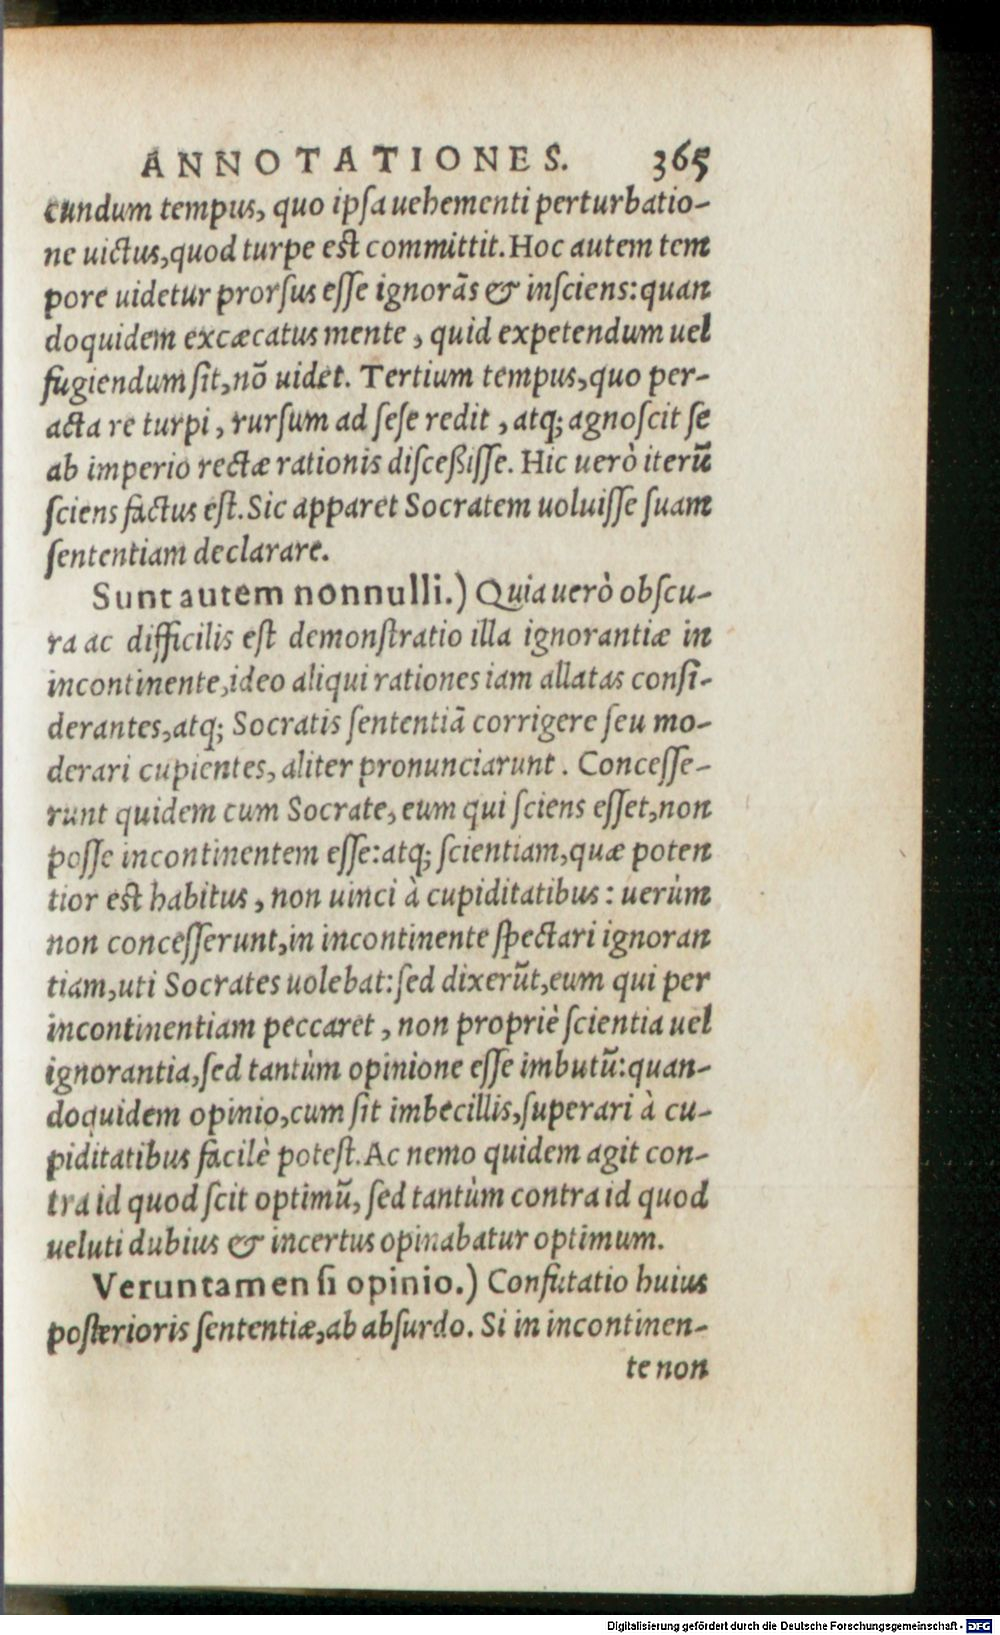 ANNOTATIONES. 365
cundum tempus, quo ipſa uehementi perturbatio-
ne uictus, quod turpe est committit. Hoc autem tem
pore uidetur prorſus eſſe ignorãs & inſciens: quan
doquidem excæcatus mente, quid expetendum uel
fugiendum ſit, nõ uidet. Tertium tempus, quo per-
acta re turpi, rurſum ad ſeſe redit, atq; agnoſcit ſe
ab imperio rectæ rationis diſceßiſſe. Hic uerò iterũ
ſciens factus eſt. Sic apparet Socratem uoluiſſe ſuam
ſententiam declarare.
Sunt autem nonnulli.) Quia uerò obſcu-
ra ac difficilis eſt demonſtratio illa ignorantiæ in
incontinente, ideo aliqui rationes iam allatas conſi-
derantes, atq; Socratis ſententiã corrigere ſeu mo-
derari cupientes, aliter pronunciarunt. Conceſſe-
runt quidem cum Socrate, eum qui ſciens eſſet, non
poſſe incontinentem eſſe: atq; ſcientiam, quæ poten
tior est habitus, non uinci à cupiditatibus: uerùm
non conceſſerunt, in incontinente ſpectari ignoran
tiam, uti Socrates uolebat: ſed dixerũt, eum qui per
incontinentiam peccaret, non propriè ſcientia uel
ignorantia, ſed tantùm opinione eſſe imbutũ: quan-
doquidem opinio, cum ſit imbecillis, ſuperari à cu-
piditatibus facilè poteſt. Ac nemo quidem agit con-
tra id quod ſcit optimũ, ſed tantùm contra id quod
ueluti dubius & incertus opinabatur optimum.
Veruntamen ſi opinio.) Confutatio huius
poſterioris ſententiæ, ab abſurdo. Si in incontinen-
te non
Digitalisierung gefördert durch die Deutsche Forschungsgemeinschaft - DFG